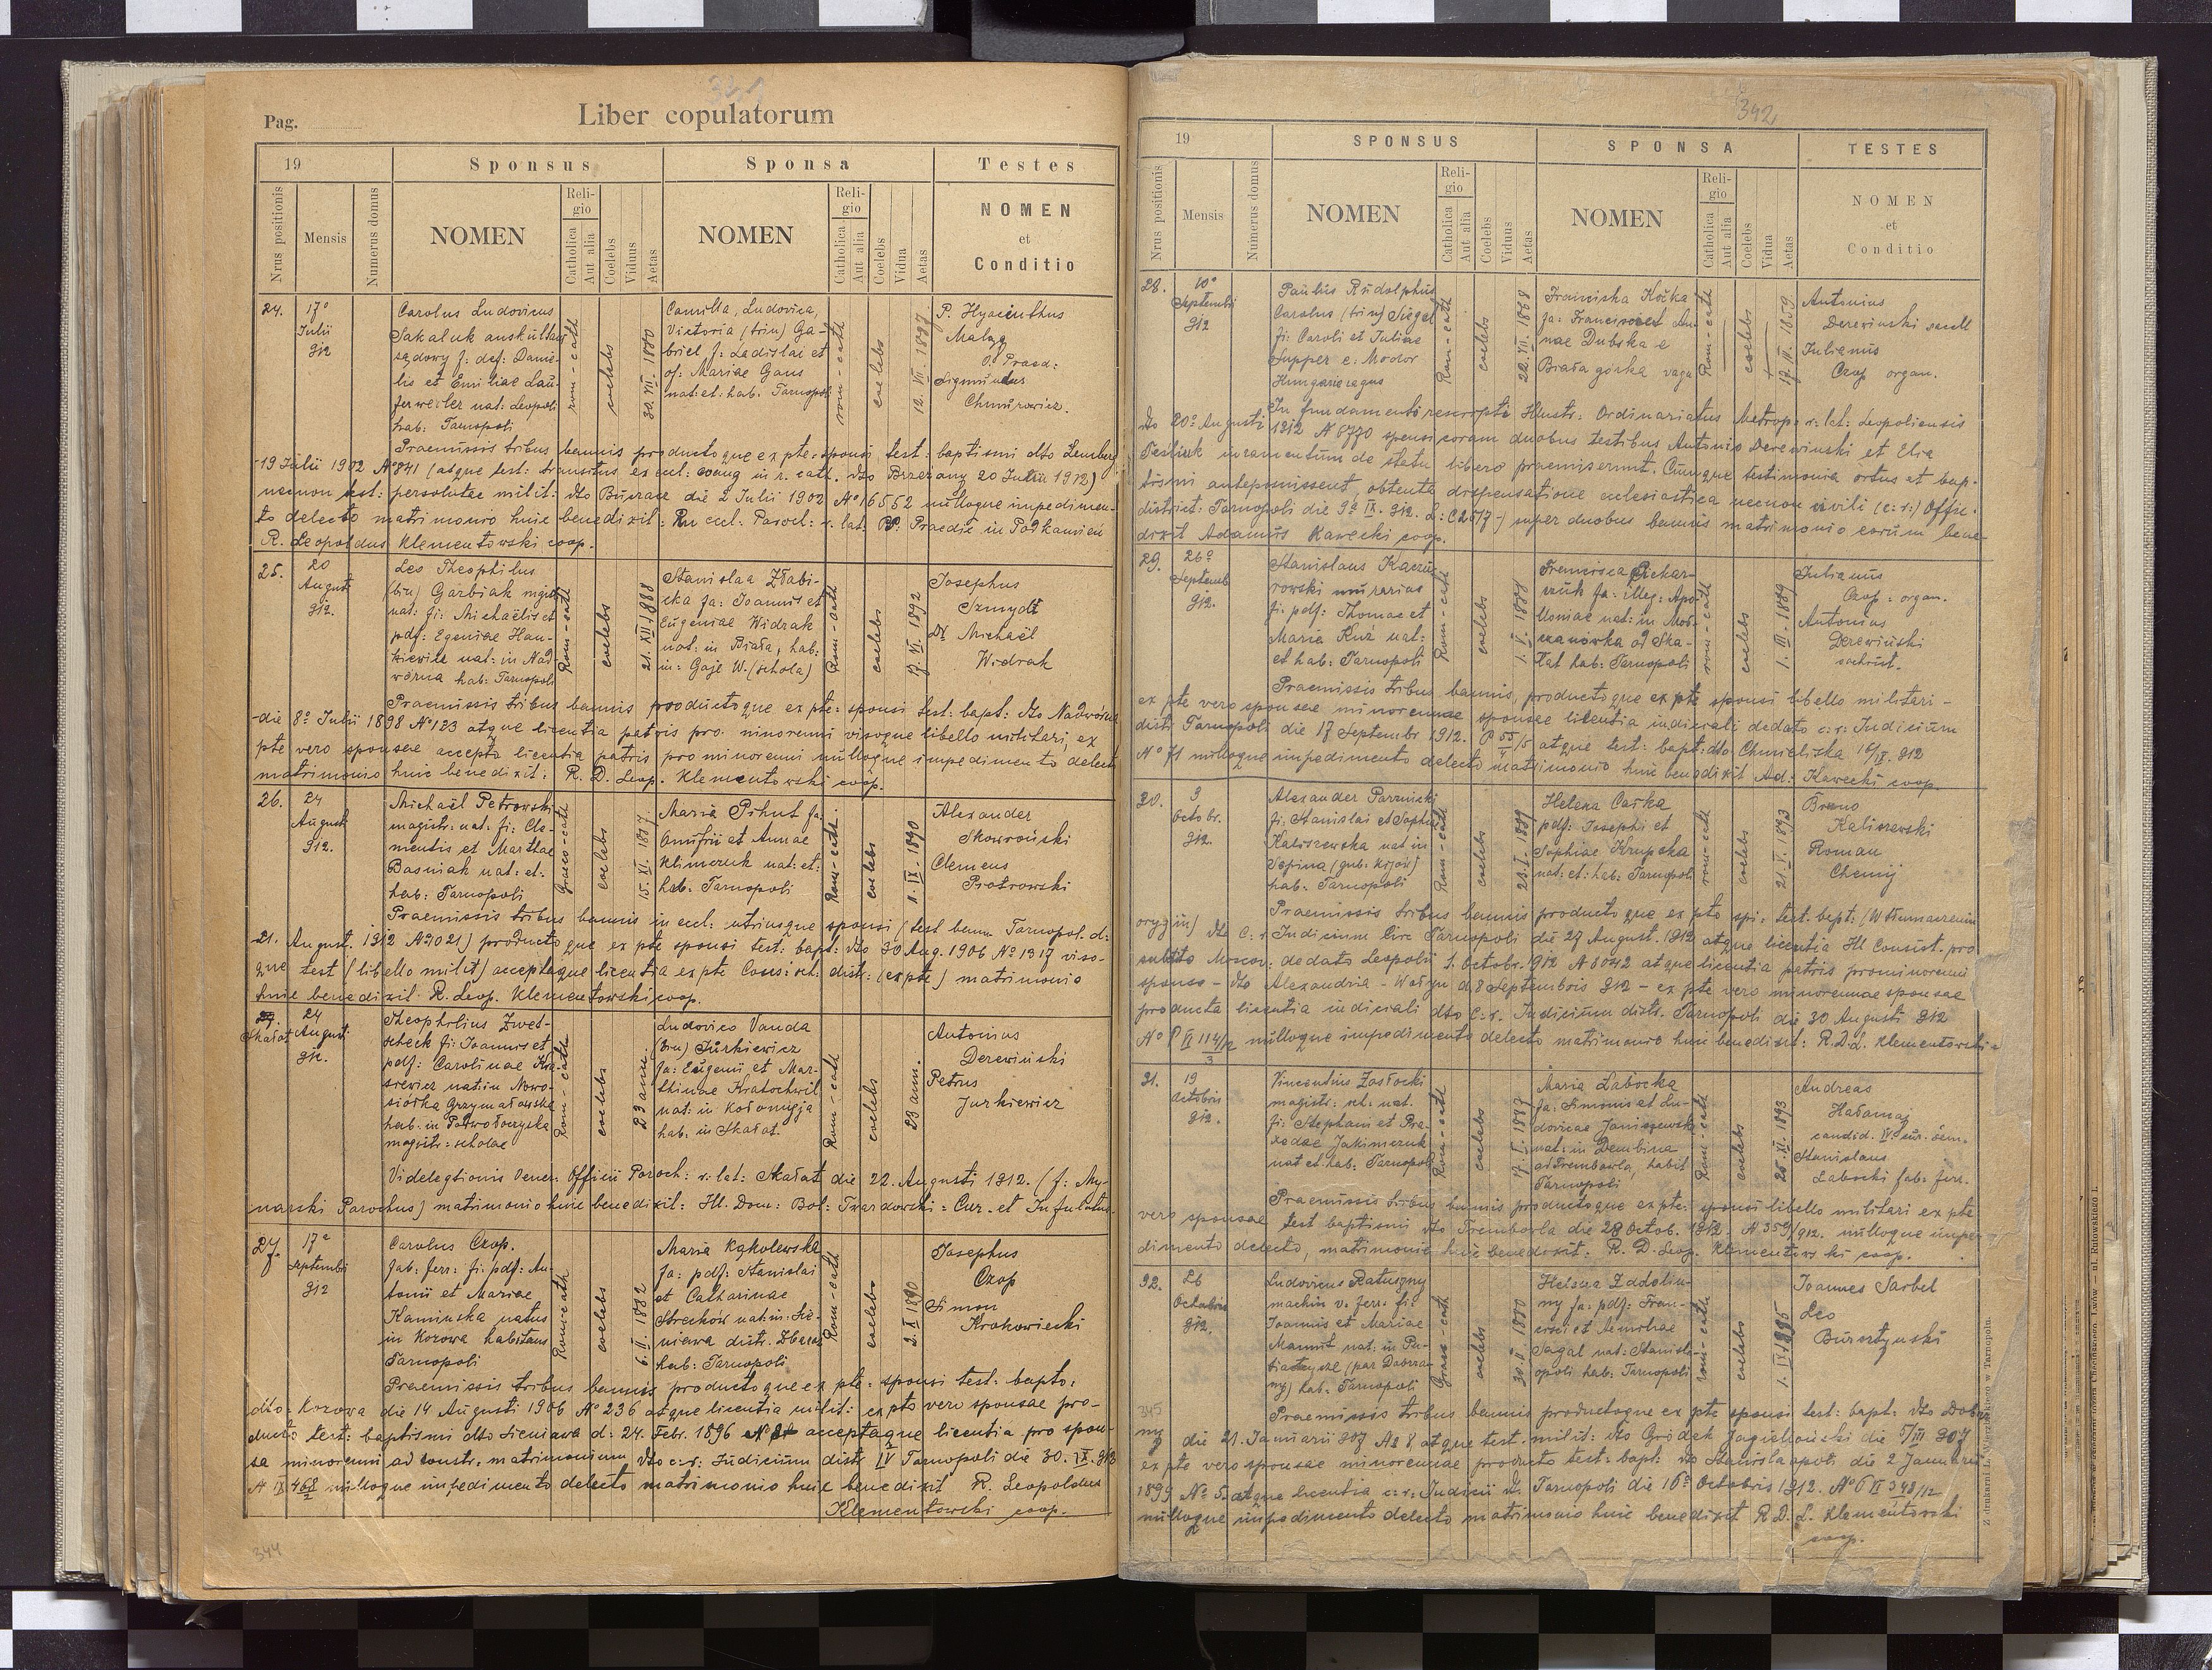 341
Pag.
Liber copulatorum
19
Sponsus
Sponsa
Testes
Nrus positionis
Mensis
Numerus domus
NOMEN
Religio
Catholica
Aut alia
Coelebs
Viduus
Aetas
NOMEN
Religio
Catholica
Aut alia
Coelebs
Vidua
Aetas
NOMEN
et
Conditio
24.
17°
Julii
912
Carolus Ludovicus
Sakaluk auskultant
sądowy f: def: Danie-
lis et Emiliae Lau-
ferweiler nat: Leopoli
hab: Tarnopoli
rom-cath
coelebs
30. VII. 1880
Camilla, Ludovica,
Victoria (trin) Ga-
briel f: Ladislai et
of: Mariae Gans
nat: et: hab: Tarnopoli
rom-cath
coelebs
12. VII. 1887
P. Hyacinthus
O. Praed:
Sigmundus
Chmurowicz.
Praemissis tribus bannis productoque ex pte: sponsi test: baptismi dto Lemberg
19 Julii 1902 N°841 (atque test: transitus ex ecl: in r. cath. dto Brzeżany 20 Julii 1912)
necnon test: persolutae milit: dto die 2 Julii 1902 N° 16552 nulloque impedimen-
to delecto matrimonio huic benedixit: Paroch: r. lat. PP. Praedic in Podkamień
R. Leopoldus Klementowski coop.
25.
20
August
912.
Leo Theophilus
(bin) Garbiak magist
nat: fi: Michaëlis et
pdf: Egeniae Han-
kiewicz nat: in Nad-
wórna hab: Tarnopoli
Rom-cath
coelebs
21. XII 1888
Stanislaa Złabi-
cka fa: Joannis et
Eugeniae Widrak
nat: in Biała, hab:
in: Gaje W. (schola)
Rom-cath
coelebs
17. VI. 1892
Josephus
Szmydt
Dr Michaël
Widrak
Praemissis tribus bannis productoque ex pte: sponsi test: bapt: dto Nadwórna
die 8° Julii 1898 N° 123 atque licentia patris pro. minorenni visoque libello militari, ex
pte vero sponsae accepta licentia patris pro minorenni nulloque impedimento delecto
matrimonio huic benedixit: R. D. Leop. Klementowski coop.
26.
24
August
912.
Michaël Petrowski
magistr: nat: fi: Cle-
mentis et Marthae
Basniak nat: et:
hab: Tarnopoli
Graeco-cath
coelebs
15. XI. 1887
Maria Pihut fa:
Onufrii et Annae
Klimczuk nat: et:
hab: Tarnopoli
Rom-cath
coelebs
11. IX. 1890
Alexander
Skowroński
Clemens
Piotrowski
Praemissis tribus bannis in eccl. utriusque sponsi (test bann Tarnopol. d:
21. August. 1912 N° 1021) productoque ex pte sponsi test: bapt: dto 30 Aug. 1906 N° 1917 viso-
que test (libello milit) acceptaque licentia ex pte Consi sch: distr: (ex pte) matrimonio
huic benedixit R. Leop. Klementowski coop.
27.
Skałat
24
August
912.
Theophilus Zwet-
scheck fi: Joannis et
pdf: Carolinae Kra-
siewicz nat: in Nowo-
siołka Grzymałowska
hab: in Podwołoczyska
magistr: scholae
Rom-cath
coelebs
23 anni.
Ludovica Vanda
(bin) Jurkiewicz
fa: Eugenii et Mar-
thinae Kratochwil
nat: in Kołomyja
hab: in Skałat.
Rom-cath
coelebs
23 ann.
Antonius
Derewiński
Petrus
Jurkiewicz
Vi delegtionis Vener: Officii Paroch: r: lat: Skałat die 22. Augusti 1912. (f: My-
narski Parochus) matrimonio huic benedixit: Ill. Dom: Bol: Twardowski = Cur. et Infulatus
27.
17a
Septembri
912
Carolus Czop.
fab: ferr: fi: pdf: An-
tonii et Mariae
Kaminska natus
in Kozowa habitans
Tarnopoli
Rom-cath
coelebs
6. II. 1882
Maria Kąkolewska
fa: pdf: Stanislai
et Catharinae
Strechów nat: in: Sie-
niawa distr. Zbaraż
hab: Tarnopoli
Rom-cath
coelebs
2. X 1890
Josephus
Czop
Simon
Krakowiecki
Praemissis tribus bannis productoque ex pte: sponsi test: bapto:
dto: Kozowa die 14 Augusti 1906 N° 236 atque licentia milit: ex pte vero sponsae pro-
ducto test: baptismi dto Sieniawa d: 24. Febr. 1896 acceptaque licentia pro spon-
sa minorenni ad constr. matrimonium dto c: r: Judicium distr IV Tarnopoli die 30.
nulloque impedimento delecto matrimonio huic benedixit R. Leopoldus
Klementowski coop.
344
342
19
SPONSUS
SPONSA
TESTES
Nrus positionis
Mensis
Numerus domus
NOMEN
Religio
Catholica
Aut alia
Coelebs
Viduus
Aetas
NOMEN
Religio
Catholica
Aut alia
Coelebs
Vidua
Aetas
NOMEN
et
Conditio
28.
10°
Septembri
912
Paulus Rudolphus
Carolus (trin) Siegel
fi: Caroli et Juliae
Supper e: Modor
Hungariae vagus
Rom-cath
coelebs
22. VII. 1868
Franciska Kočka
fa: Francisci et An-
nae Dubska e
Biała górka vaga
Rom-cath
coelebs
17. IV. 1859
Antonius
Derewinski
Julianus
Czop organ.
In fundamento rescripti Illustr: Ordinariatus Metrop: r: lat: Leopoliensis
dto 20° Augusti 1912 N 6770 sponsi coram duobus testibus Antonio Derewinski et Elia
Tesluk iuramentum de statu libero praemiserunt. Cumque testimonia ortus et bap-
tismi anteposuissent, obtenta dispensatione eclesiastica necnon civili (c: r:) Offic:
district: Tarnopoli die 9° IX. 912. super duobus bannis matrimonio eorum bene-
dixit Adamus Kawecki coop.
29.
26°
Septemb
912.
Stanislaus Kaczu-
rowski murarius
fi: pdf: Thomae et
Maria Kuź nat:
et hab: Tarnopoli
Rom-cath
coelebs
Francisca
fa: illeg: Apo-
loniae nat: in
hab: Tarnopoli
rom-cath
coelebs
1. III. 1889
Julianus
Czop: organ.
Antonius
Derewiński
Praemissis tribus bannis, productoque ex pte sponsi libello militari -
ex pte vero sponsae minorennae sponsae licentia iudiciali dedato c: r: Judicium
distr. Tarnopoli die 17 Septembr 1912. atque test: bapt: dto Chmieliska 16/IX. 912
N° 71 nulloque impedimento delecto matrimonio huic benedixit Ad: Kawecki coop.
30.
3
Octobr.
912.
Alexander Parnicki
fi: Stanislai et Sophia
Kaliszewska nat in
hab: Tarnopoli
Rom-cath
coelebs
23. I. 1889
Helena Carka
pdf: Josephi et
Sophiae Krupska
nat: et: hab: Tarnopoli
rom-cath
coelebs
21. V. 1893
Bruno
Kaliszewski
Roman
Chemij
Praemissis tribus bannis productoque ex pte spi: test. bapt: (W tłumaczeniu
orygin) dto C: r: Judicium Circ Tarnopoli die 27 August. 1912 atque licentia Ill Consist. pro
subdito Moscov: dedato Leopoli 1. Octobr. 912 N 8042 atque licentia patris pro minorenni
sponso - dto Alexandria - Wołyn d. 8 Septembris 912 - ex pte vero minorennae sponsae
producta licentia iudiciali dto C: r. Judicium distr. Tarnopoli die 30 Augusti 912
nulloque impedimento delecto matrimonio huic benedixit: R. D. L. Klementowski
31.
19
Octobris
912.
Vincentius Zastocki
magistr: sch: nat.
fi: Stephani et Pra-
xedae Jakimczuk
nat et hab: Tarnopoli
Rom-cath
coelebs
17. I. 1887
Maria Labocka
fa: Simonis et Lu-
dovicae Janiszewska
nat: in Dembina
ad Trembowla, habit
Tarnopoli
Rom-cath
coelebs
25. XI. 1893
Andreas
Hałamaj
candid. IV. Sem.
Stanislaus
Labocki fab: ferr.
Praemissis tribus bannis productoque ex pte: sponsi libello militari ex pte
vero sponsae test baptismi dto Trembowla die 28 Octob. 1912. N 359/912. nulloque impe-
dimento delecto, matrimonio huic benedixit: R. D. Leop. Klementowski coop.
32.
26
Octobris
912.
Ludovicus Ratuszny
machin v. ferr. fi:
Joannis et Mariae
nat: in Pu-
hab: Tarnopoli
Graec-cath
coelebs
1880
Helena Zadolin-
ny fa: pdf: Fran-
cisci et Aemiliae
Sagal nat: Stanisla-
opoli hab: Tarnopoli
rom-cath
coelebs
Joannes Sarbel
Leo
Bursztyński
345
Praemissis tribus bannis productoque ex pte sponsi test: bapt: dto Dobra-
ny die 21. Januarii 907 N° 8, atque test. milit: dto Gródek Jagielloński die 907
ex pte vero sponsae minorennae producto test: bapt: dto Stanislaopoli die 2 Januarii
1899 N° 5. atque licentia c: r: Judicii d. Tarnopoli die 16° Octobris 1912.
nulloque impedimento delecto matrimonio huic benedixit R. D. L. Klementowski
coop.